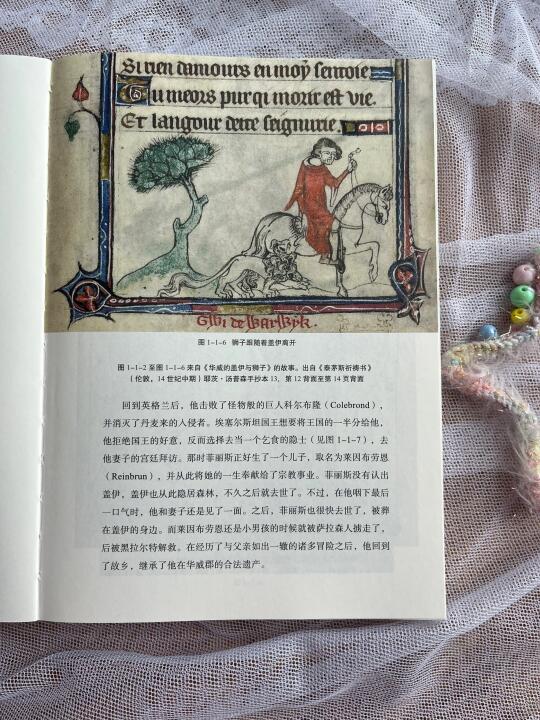 Si rien damours en moy sentoie
Tu meors pur qi morir est vie.
Et langour dette seignurie.
Gwi de Warwyk.
图 1-1-6 狮子跟随着盖伊离开
图 1-1-2 至图 1-1-6 来自《华威的盖伊与狮子》的故事。出自《泰茅斯祈祷书》
(伦敦，14 世纪中期) 耶茨·汤普森手抄本 13，第 12 背面至第 14 页背面
回到英格兰后，他击败了怪物般的巨人科尔布隆（Colebrond），
并消灭了丹麦来的入侵者。埃塞尔斯坦国王想要将王国的一半分给他，
他拒绝国王的好意，反而选择去当一个乞食的隐士（见图 1-1-7），去
他妻子的宫廷拜访。那时菲丽斯正好生了一个儿子，取名为莱因布劳恩
（Reinbrun），并从此将她的一生奉献给了宗教事业。菲丽斯没有认出
盖伊，盖伊也从此隐居森林，不久之后就去世了。不过，在他咽下最后
一口气时，他和妻子还是见了一面。之后，菲丽斯也很快去世了，被葬
在盖伊的身边。而莱因布劳恩还是小男孩的时候就被萨拉森人掳走了，
后被黑拉尔特解救。在经历了与父亲如出一辙的诸多冒险之后，他回到
了故乡，继承了他在华威郡的合法遗产。